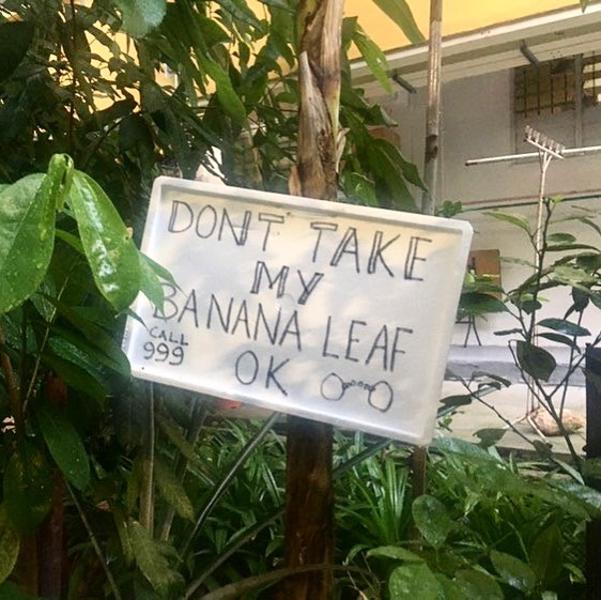 DONT TAKE
MY
BANANA LEAF
OK
CALL
999